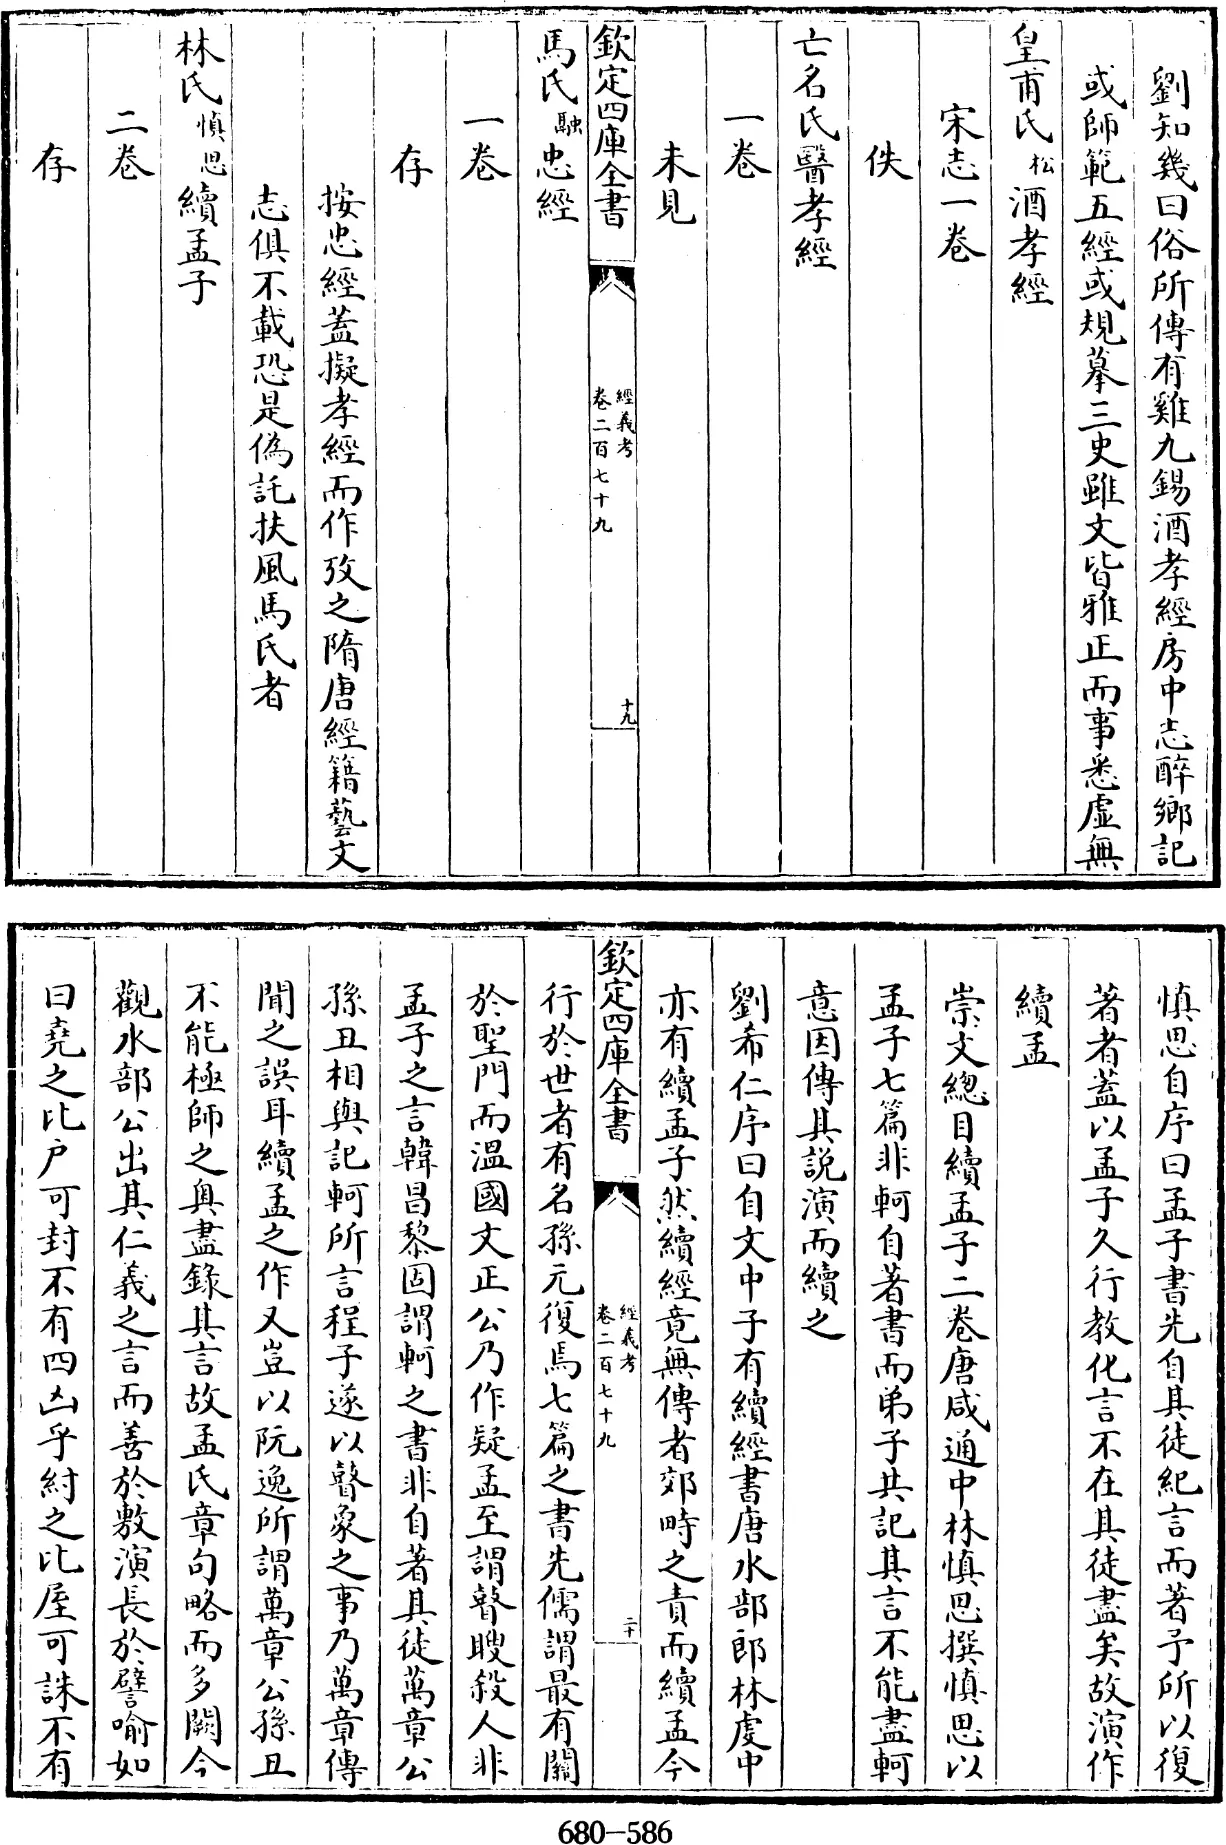 劉知幾曰俗所傳有雞九錫酒孝經房中志醉鄉記
或師範五經或規摹三史雖文皆雅正而事悉虛無
皇甫氏松酒孝經
宋志一卷
佚
亡名氏醫孝經
一卷
未見
欽定四庫全書
經義考
卷二百七十九
十九
馬氏融忠經
一卷
存
按忠經蓋擬孝經而作攷之隋唐經籍藝文
志俱不載恐是偽託扶風馬氏者
林氏慎思續孟子
二卷
存
慎思自序曰孟子書先自其徒紀言而著予所以復
著者蓋以孟子久行教化言不在其徒盡矣故演作
續孟
崇文總目續孟子二卷唐咸通中林慎思撰慎思以
孟子七篇非軻自著書而弟子共記其言不能盡軻
意因傳其說演而續之
劉希仁序曰自文中子有續經書唐水部郎林虔中
亦有續孟子然續經竟無傳者郊時之責而續孟今
欽定四庫全書
經義考
卷二百七十九
二十
行於世者有名孫元復焉七篇之書先儒謂最有關
於聖門而溫國文正公乃作疑孟至謂瞽瞍殺人非
孟子之言韓昌黎固謂軻之書非自著其徒萬章公
孫丑相與記軻所言程子遂以瞽象之事乃萬章傳
聞之誤耳續孟之作又豈以阮逸所謂萬章公孫丑
不能極師之奧盡錄其言故孟氏章句略而多闕今
觀水部公出其仁義之言而善於敷演長於譬喻如
曰堯之比户可封不有四凶乎紂之比屋可誅不有
680-586